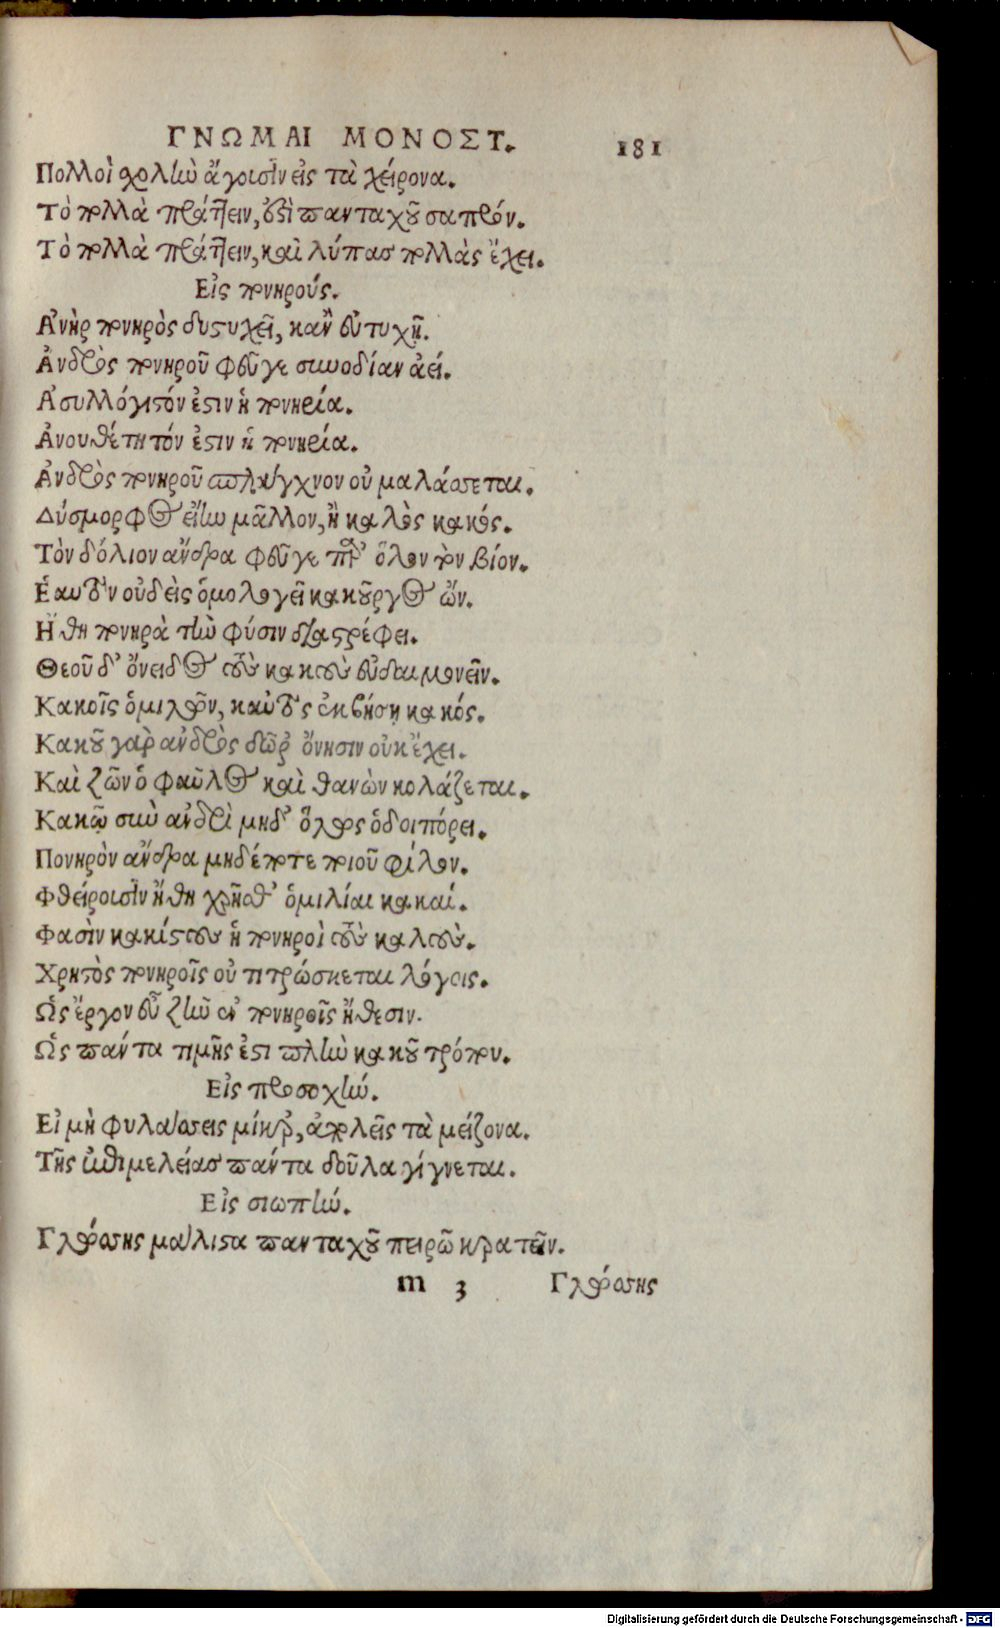 ΓΝΩΜΑΙ ΜΟΝΟΣΤ. 181
Πολλοὶ χολὴν ἄγουσιν εἰς τὰ χείρονα.
Τὸ πολλὰ πράττειν, ἐστὶ πανταχοῦ σαπρόν.
Τὸ πολλὰ πράττειν, καὶ λύπας πολλὰς ἔχει.
Εἰς πονηρούς.
Ἀνὴρ πονηρὸς δυστυχεῖ, κἂν εὐτυχῇ.
Ἀνδρὸς πονηροῦ φεῦγε συνοδίαν ἀεί.
Ἀσυλλόγιστόν ἐστιν ἡ πονηρία.
Ἀνουθέτητόν ἐστιν ἡ πονηρία.
Ἀνδρὸς πονηροῦ σπλάγχνον οὐ μαλάσσεται.
Δύσμορφος εἴην μᾶλλον, ἢ καλὸς κακός.
Τὸν δόλιον ἄνδρα φεῦγε παρ' ὅλον τὸν βίον.
Ἑαυτὸν οὐδεὶς ὁμολογεῖ κακοῦργος ὤν.
Ἤθη πονηρὰ τὴν φύσιν διαστρέφει.
Θεοῦ δ' ὄνειδος τοὺς κακοὺς εὐδαιμονεῖν.
Κακοῖς ὁμιλῶν, καὐτὸς ἐκβήσῃ κακός.
Κακοῦ γὰρ ἀνδρὸς δῶρα ὄνησιν οὐκ ἔχει.
Καὶ ζῶν ὁ φαῦλος καὶ θανὼν κολάζεται.
Κακῷ σὺν ἀνδρὶ μηδ' ὅλως ὁδοιπόρει.
Πονηρὸν ἄνδρα μηδέποτε ποιοῦ φίλον.
Φθείρουσιν ἤθη χρῆσθ' ὁμιλίαι κακαί.
Φασὶν κακίστους ἡ πονηροὶ τοὺς καλούς.
Χρηστὸς πονηροῖς οὐ τιτρώσκεται λόγοις.
Ὡς ἔργον εὖ ζῆν ἐν πονηροῖς ἤθεσιν.
Ὡς πάντα τιμῆς ἐστι πλὴν κακοῦ τρόπου.
Εἰς προσοχήν.
Εἰ μὴ φυλάσσεις μίκρ', ἀπολεῖς τὰ μείζονα.
Τῆς ἐπιμελείας πάντα δοῦλα γίγνεται.
Εἰς σιωπήν.
Γλώσσης μάλιστα πανταχοῦ πειρῶ κρατεῖν.
m 3 Γλώσσης
Digitalisierung gefördert durch die Deutsche Forschungsgemeinschaft - DFG